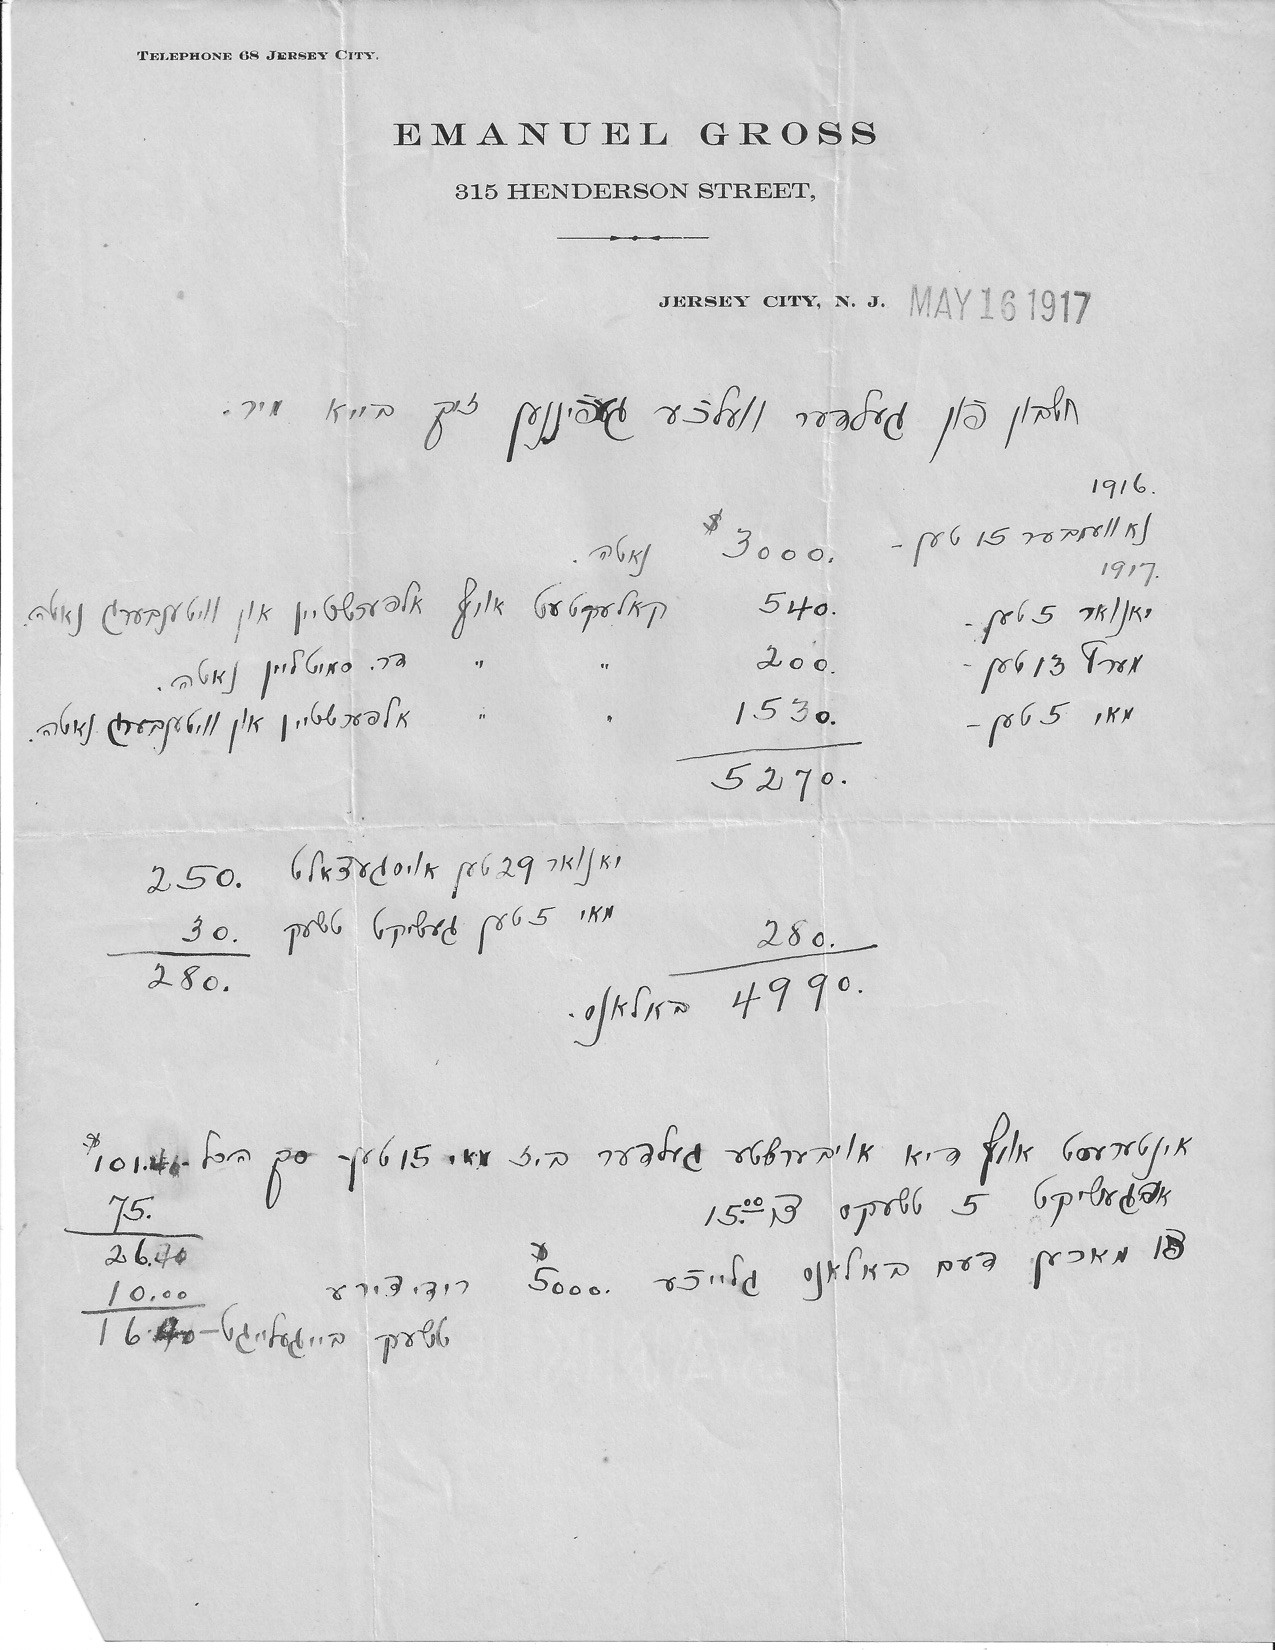 TELEPHONE 68 JERSEY CITY.
EMANUEL GROSS
315 HENDERSON STREET,
JERSEY CITY, N. J. MAY 16 1917
חשבון פון געלדער וועלכע געפינען זיך בייא מיר.
1916.
נאוועמבער 15טען - $3000. נאטה.
1917.
יאנואר 5טען - 540. קאלעקטעט אויף אלפערשטיין און וויטענבערג נאטה.
מערץ 13טען - 200. " " דר. סמיטליין נאטה.
מאי 5טען - 1530. " " אלפערשטיין און וויטענבערג נאטה.
5270.
יאנואר 29טען אויסגעצאלט 250.
מאי 5טען געשיקט טשעק 30. 280.
280.
4990. באלאנס.
אינטערעסט אויף דיא אויבערשטע געלדער ביז מאי 15טען סך הכל $101.
אפגעשיקט 5 טשעקס 15.00 75.
26.
מאכען דעם באלאנס גלייכע $5000. 10.00
טשעק בייגעלייגט - 16.40